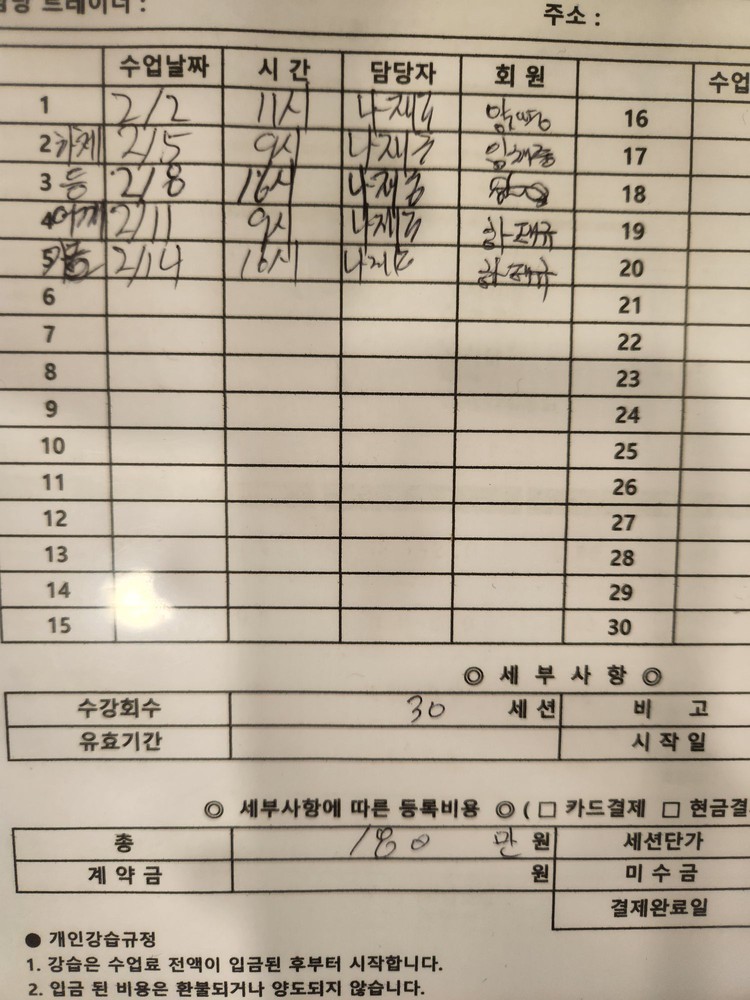 트레이너 : 주소 :
수업날짜 시 간 담당자 회 원 수업
1 2/2 11시 16
2 하체 2/5 9시 17
3 등 2/8 16시 18
4 어깨 2/11 9시 19
5 2/14 16시 20
6 21
7 22
8 23
9 24
10 25
11 26
12 27
13 28
14 29
15 30
◎ 세 부 사 항 ◎
수강회수 30 세 션 비 고
유효기간 시 작 일
◎ 세부사항에 따른 등록비용 ◎ ( □ 카드결제 □ 현금결
총 180 만 원 세션단가
계 약 금 원 미 수 금
결제완료일
● 개인강습규정
1. 강습은 수업료 전액이 입금된 후부터 시작합니다.
2. 입금 된 비용은 환불되거나 양도되지 않습니다.